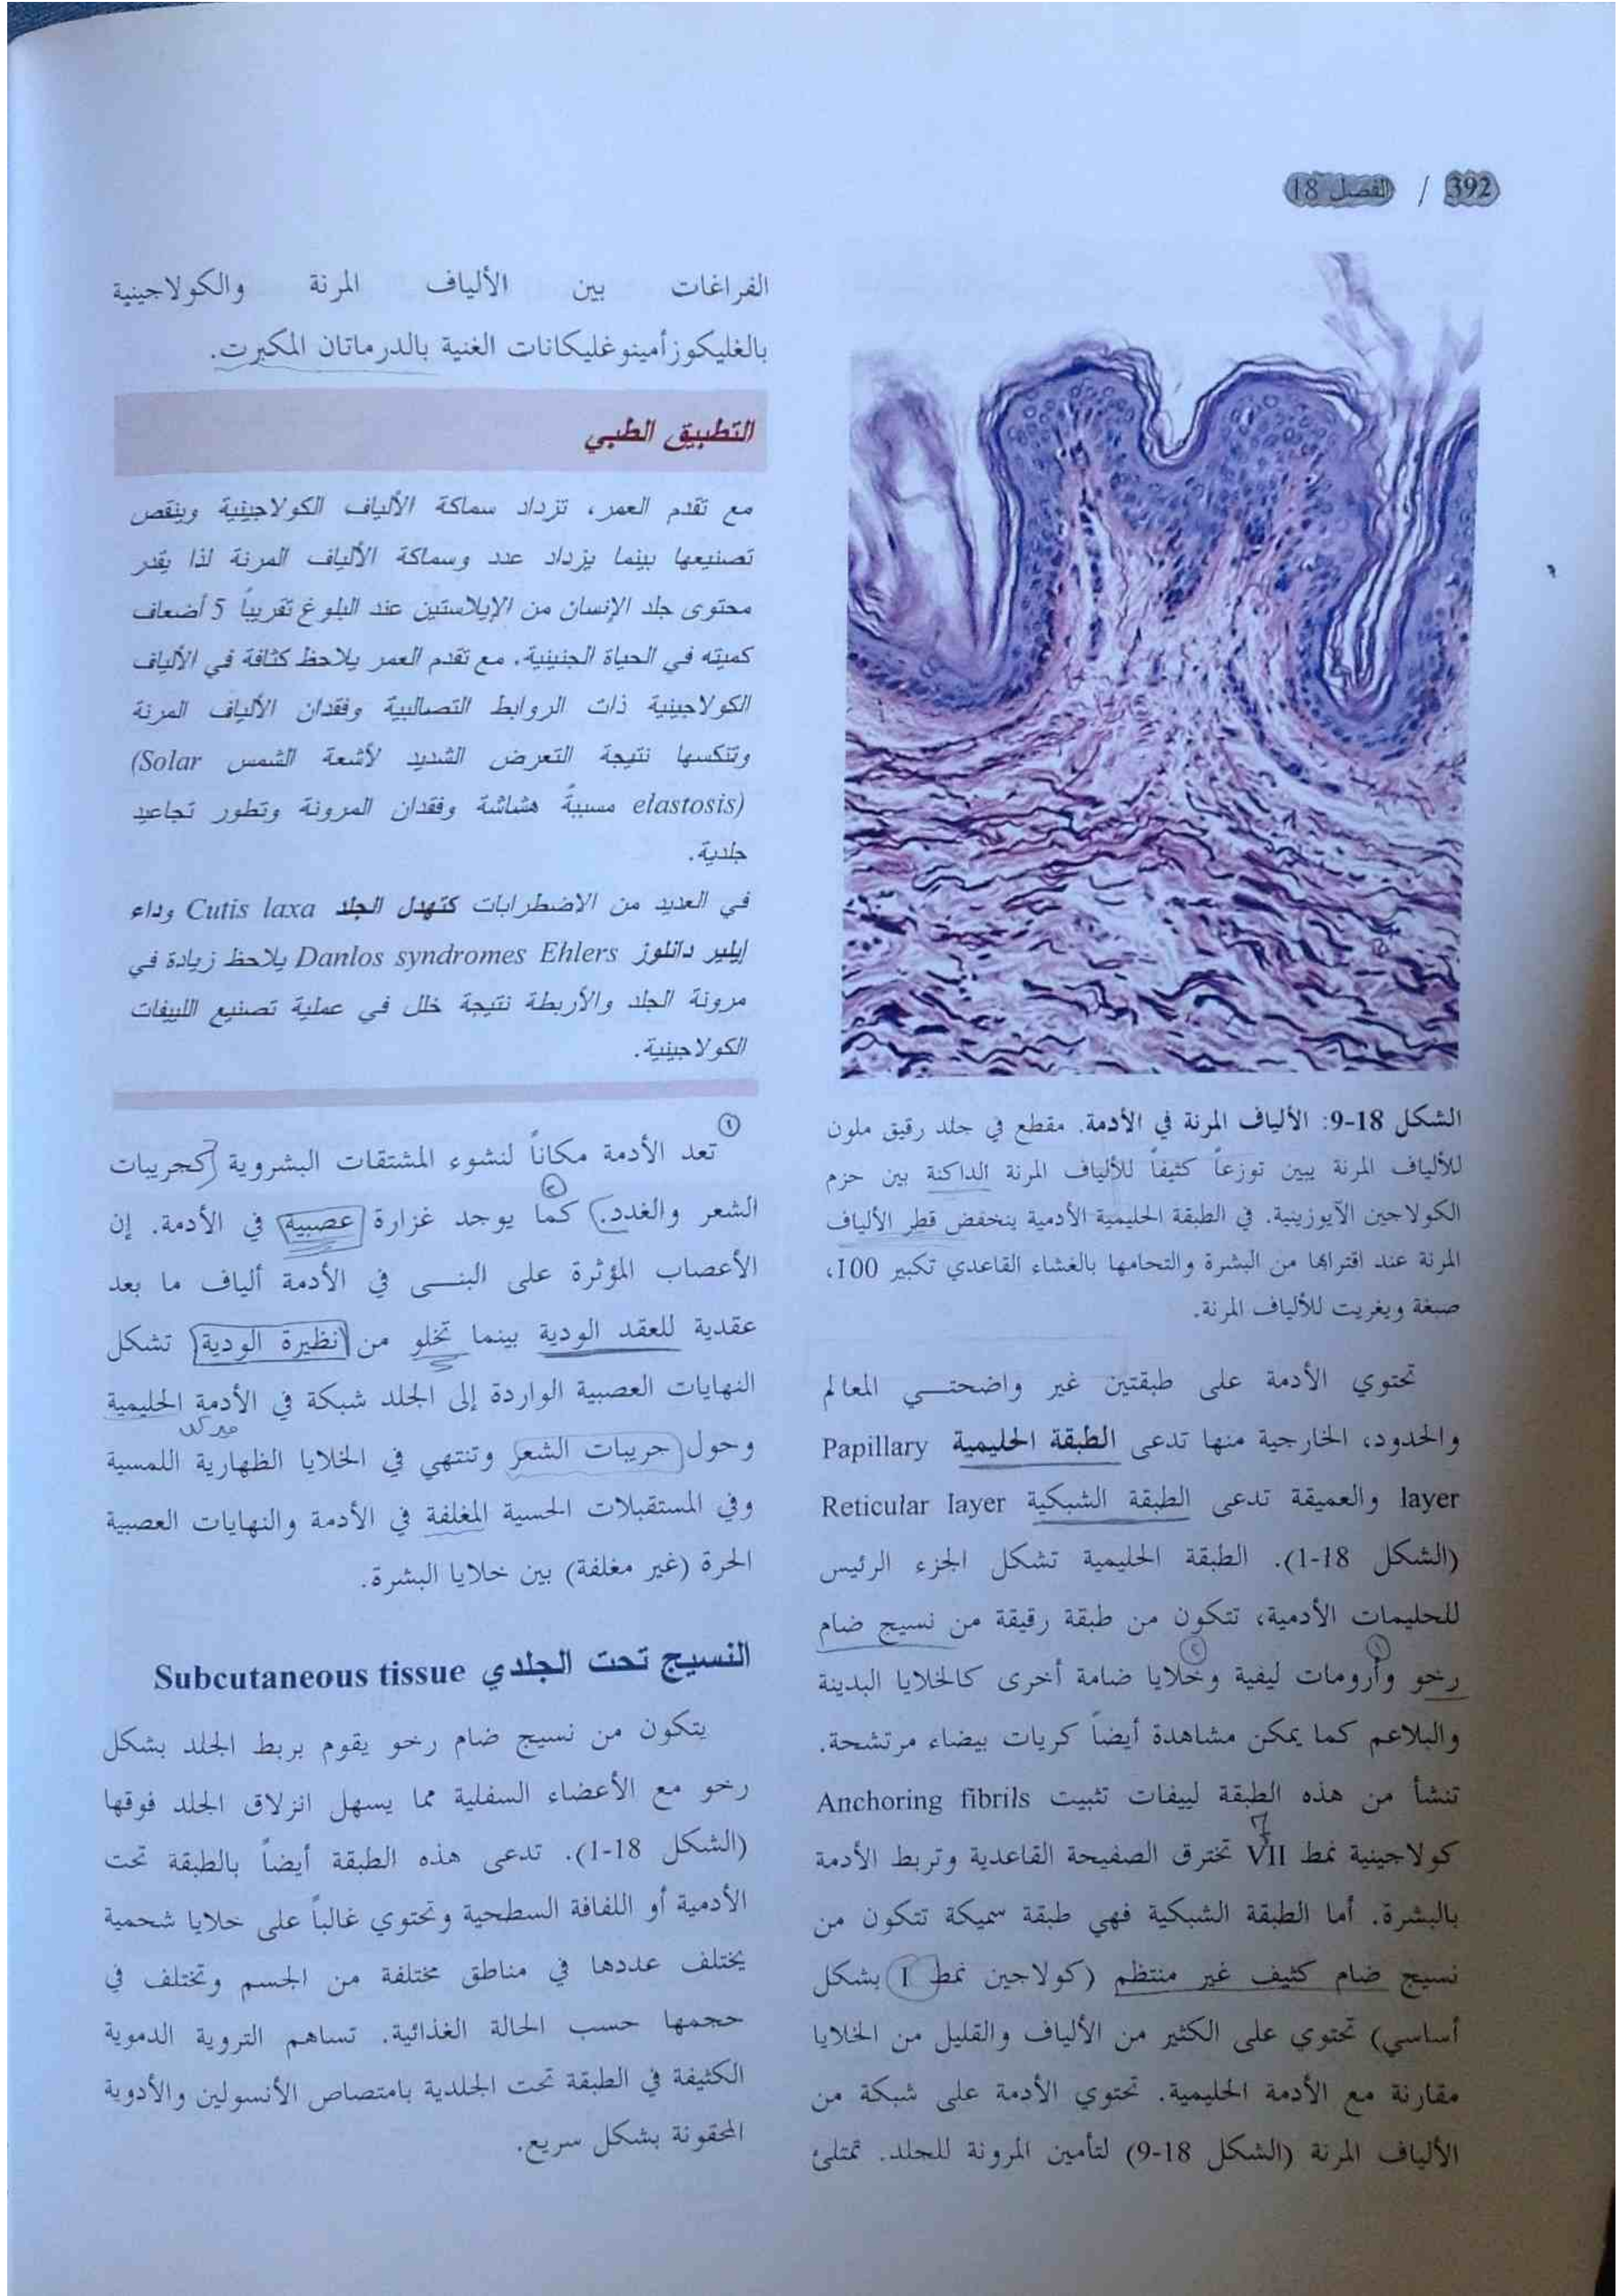 392 / الفصل 18
الشكل 18-9: الألياف المرنة في الأدمة. مقطع في جلد رقيق ملون
للألياف المرنة يبين توزعاً كثيفاً للألياف المرنة الداكنة بين حزم
الكولاجين الآيوزينية. في الطبقة الحليمية الأدمية ينخفض قطر الألياف
المرنة عند اقترابها من البشرة والتحامها بالغشاء القاعدي تكبير 100،
صبغة ويغريت للألياف المرنة.
تحتوي الأدمة على طبقتين غير واضحتـــي المعالم
والحدود، الخارجية منها تدعى الطبقة الحليمية Papillary
layer والعميقة تدعى الطبقة الشبكية Reticular layer
(الشكل 18-1). الطبقة الحليمية تشكل الجزء الرئيس
للحليمات الأدمية، تتكون من طبقة رقيقة من نسيج ضام
١ ٢
رخو وأرومات ليفية وخلايا ضامة أخرى كالخلايا البدينة
والبلاعم كما يمكن مشاهدة أيضاً كريات بيضاء مرتشحة.
تنشأ من هذه الطبقة لييفات تثبيت Anchoring fibrils
7
كولاجينية نمط VII تخترق الصفيحة القاعدية وتربط الأدمة
بالبشرة. أما الطبقة الشبكية فهي طبقة سميكة تتكون من
نسيج ضام كثيف غير منتظم (كولاجين نمط I بشكل
أساسي) تحتوي على الكثير من الألياف والقليل من الخلايا
مقارنة مع الأدمة الحليمية. تحتوي الأدمة على شبكة من
الألياف المرنة (الشكل 18-9) لتأمين المرونة للجلد. تمتلئ
الفراغات بين الألياف المرنة والكولاجينية
بالغليكوزأمينوغليكانات الغنية بالدرماتان المكبرت.
التطبيق الطبي
مع تقدم العمر، تزداد سماكة الألياف الكولاجينية وينقص
تصنيعها بينما يزداد عدد وسماكة الألياف المرنة لذا يقدر
محتوى جلد الإنسان من الإيلاستين عند البلوغ تقريباً 5 أضعاف
كميته في الحياة الجنينية. مع تقدم العمر يلاحظ كثافة في الألياف
الكولاجينية ذات الروابط التصالبية وفقدان الألياف المرنة
وتنكسها نتيجة التعرض الشديد لأشعة الشمس (Solar
elastosis) مسببةً هشاشة وفقدان المرونة وتطور تجاعيد
جلدية.
في العديد من الاضطرابات كتهدل الجلد Cutis laxa وداء
إيلير دانلوز Danlos syndromes Ehlers يلاحظ زيادة في
مرونة الجلد والأربطة نتيجة خلل في عملية تصنيع اللييفات
الكولاجينية.
١
تعد الأدمة مكاناً لنشوء المشتقات البشروية كجريبات
٢
الشعر والغدد. كما يوجد غزارة عصبية في الأدمة. إن
الأعصاب المؤثرة على البنـــى في الأدمة ألياف ما بعد
عقدية للعقد الودية بينما تخلو من نظيرة الودية تشكل
النهايات العصبية الواردة إلى الجلد شبكة في الأدمة الحليمية
ميركل
وحول جريبات الشعر وتنتهي في الخلايا الظهارية اللمسية
وفي المستقبلات الحسية المغلفة في الأدمة والنهايات العصبية
الحرة (غير مغلفة) بين خلايا البشرة.
النسيج تحت الجلدي Subcutaneous tissue
يتكون من نسيج ضام رخو يقوم بربط الجلد بشكل
رخو مع الأعضاء السفلية مما يسهل انزلاق الجلد فوقها
(الشكل 18-1). تدعى هذه الطبقة أيضاً بالطبقة تحت
الأدمية أو اللفافة السطحية وتحتوي غالباً على خلايا شحمية
يختلف عددها في مناطق مختلفة من الجسم وتختلف في
حجمها حسب الحالة الغذائية. تساهم التروية الدموية
الكثيفة في الطبقة تحت الجلدية بامتصاص الأنسولين والأدوية
المحقونة بشكل سريع.